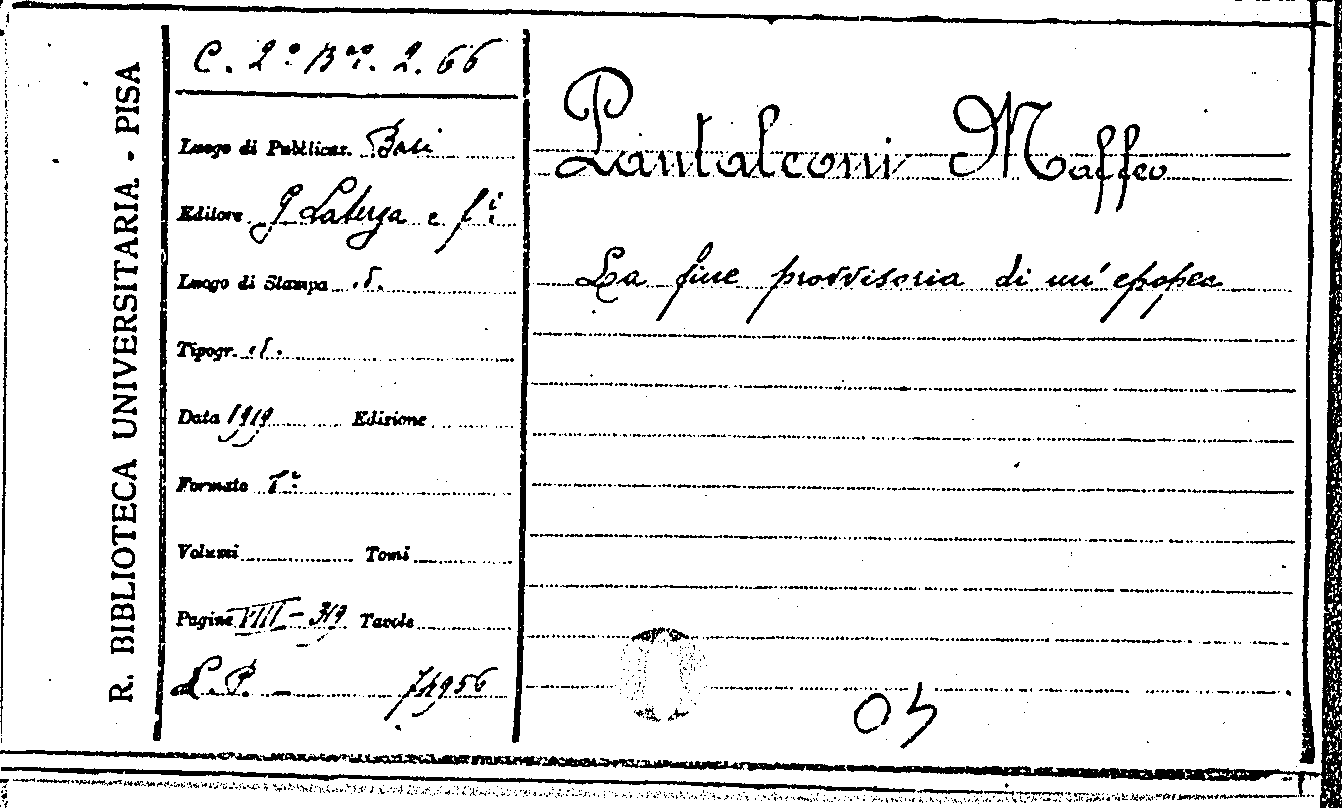 R. BIBLIOTECA UNIVERSITARIA - PISA
C. 2º 2. 66
Luogo di Pubblicaz. Bari
Editore G Laterza e f.i
Luogo di Stampa
Tipogr.
Data 1919 Edizione
Formato
Volumi Tomi
Pagine VIII - 319 Tavole
L.P. - 74956
Pantaleoni Maffeo
La fine provvisoria di un'epopea